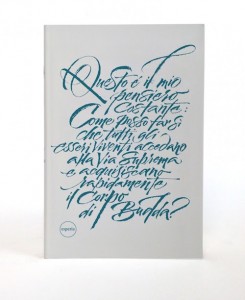 Questo è il mio
pensiero
costante:
Come posso far sì
che tutti gli
esseri viventi accedano
alla Via Suprema
e acquisiscano
rapidamente
il Corpo
di Budda?